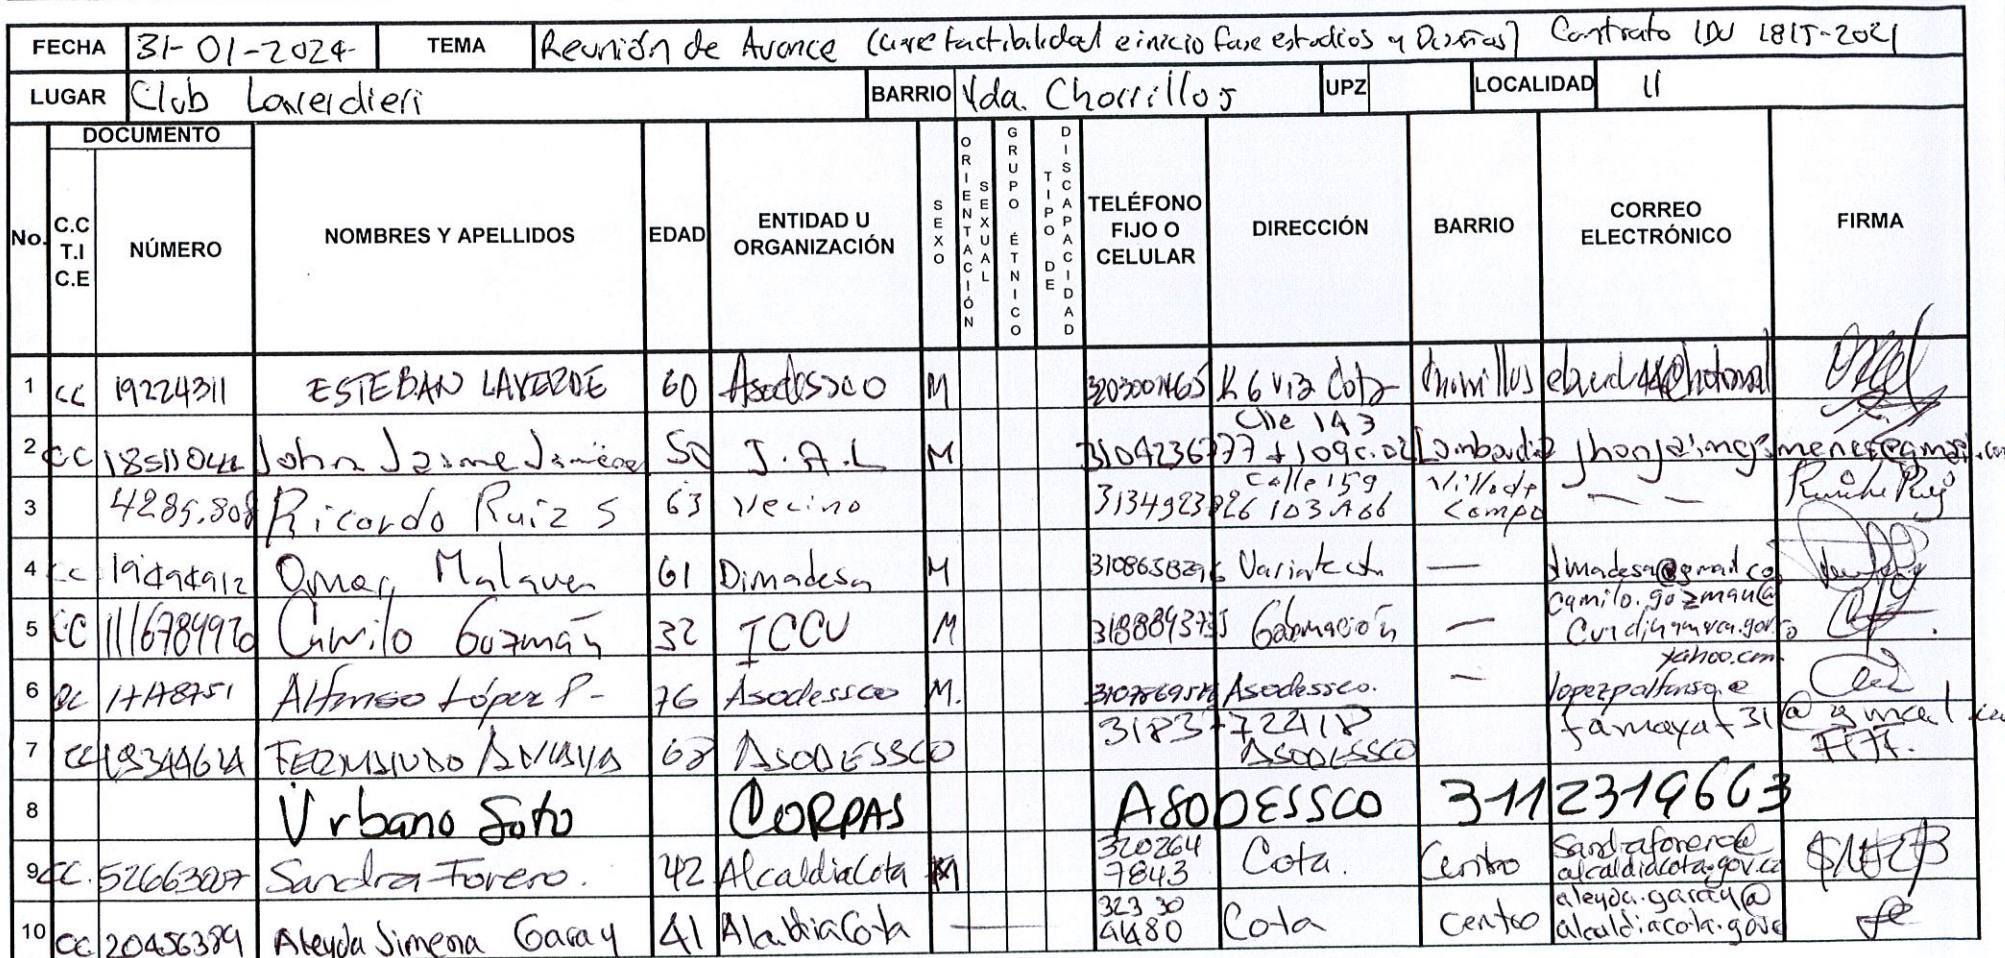 FECHA 31-01-2024 TEMA Reunión de Avance (cierre factibilidad e inicio fase estudios y Diseños) Contrato IDU 1815-2021
LUGAR Club Laverdieri BARRIO Vda. Chorrillos UPZ LOCALIDAD 11
No. DOCUMENTO C.C T.I C.E NÚMERO NOMBRES Y APELLIDOS EDAD ENTIDAD U ORGANIZACIÓN SEXO ORIENTACIÓN SEXUAL GRUPO ÉTNICO TIPO DE DISCAPACIDAD TELÉFONO FIJO O CELULAR DIRECCIÓN BARRIO CORREO ELECTRÓNICO FIRMA
1 CC 19224311 ESTEBAN LAVERDE 60 Asodessco M K 6 via Cota Chorrillos
2 CC John Jaime Jiménez 50 J.A.L M 3104236777 Clle 143 # 109c.02 Lombardia
3 4285.808 Ricardo Ruiz S 63 Vecino 3134923826 Calle 159 103 A66 Villa de Campo — —
4 CC 19494912 Omar Malaver 61 Dimadesa M Variante cota — dimadesa@gmail.co
5 CC 1116784920 Camilo Guzmán 32 ICCU M Gobernación — camilo.guzman@cundinamarca.gov.co
6 CC Alfonso López P- 76 Asodessco M. Asodessco. — lopezpalfonso@ yahoo.com
7 CC FERNANDO ANAYA 68 ASODESSCO 3183722418 ASODESSCO
8 Urbano Soto CORPAS ASODESSCO 3112319663
9 CC. 52663007 Sandra Forero. 42 Alcaldia Cota 320264 7843 Cota. Centro sandraforero@ alcaldiacota.gov.co
10 CC 20456389 Aleyda Jimena Garay 41 Alcaldia Cota — 323 30 94480 Cota Centro aleyda.garay@ alcaldiacota.gov.c